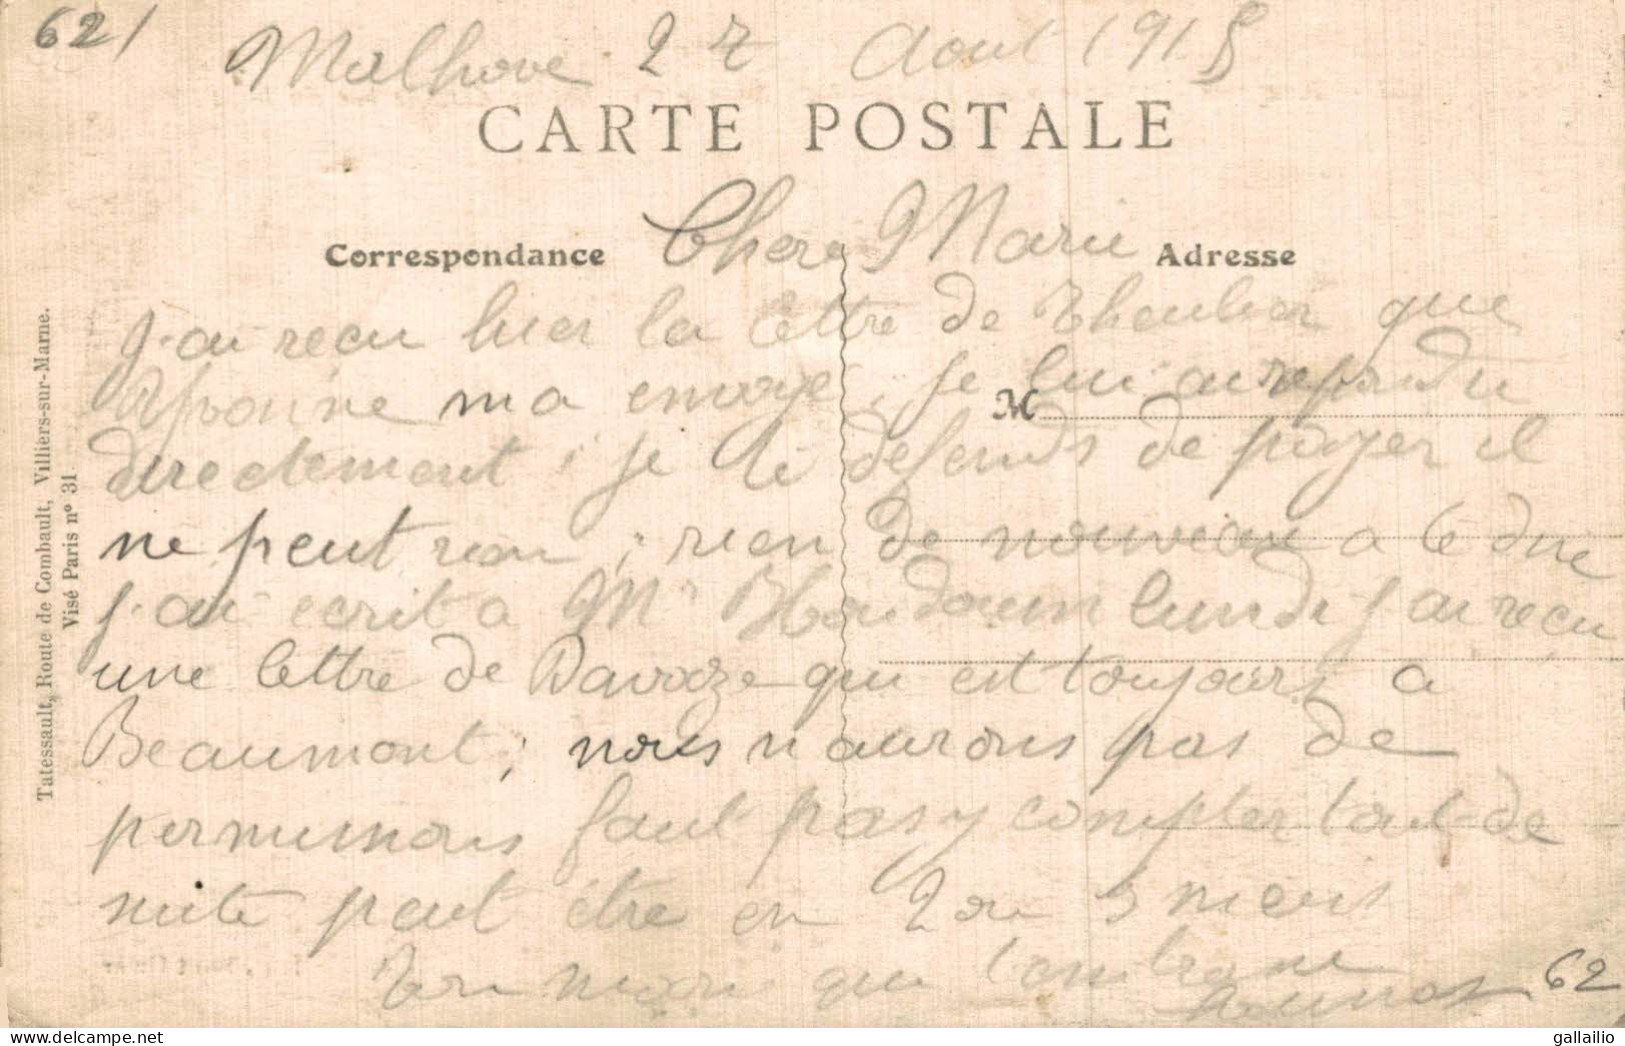 62/
Malhove 27 Aout 1915
CARTE POSTALE
Correspondance
Chere Marie
Adresse
j-ai recu hier la lettre de que
ma envoye, je lui ai repondu
M
directement; je te defends de payer il
ne peut rien; rien de nouveau a te dire
j-ai ecrit a Mr lundi j ai recu
une lettre de Davoze qui est toujours a
Beaumont; nous n aurons pas de
permissions faut pas y compter tout de
suite peut être en 2 ou 3 mois
Ton mari qui t embrasse
62
Tatessault, Route de Combault, Villiers-sur-Marne.
Visé Paris nº 31
gallailio